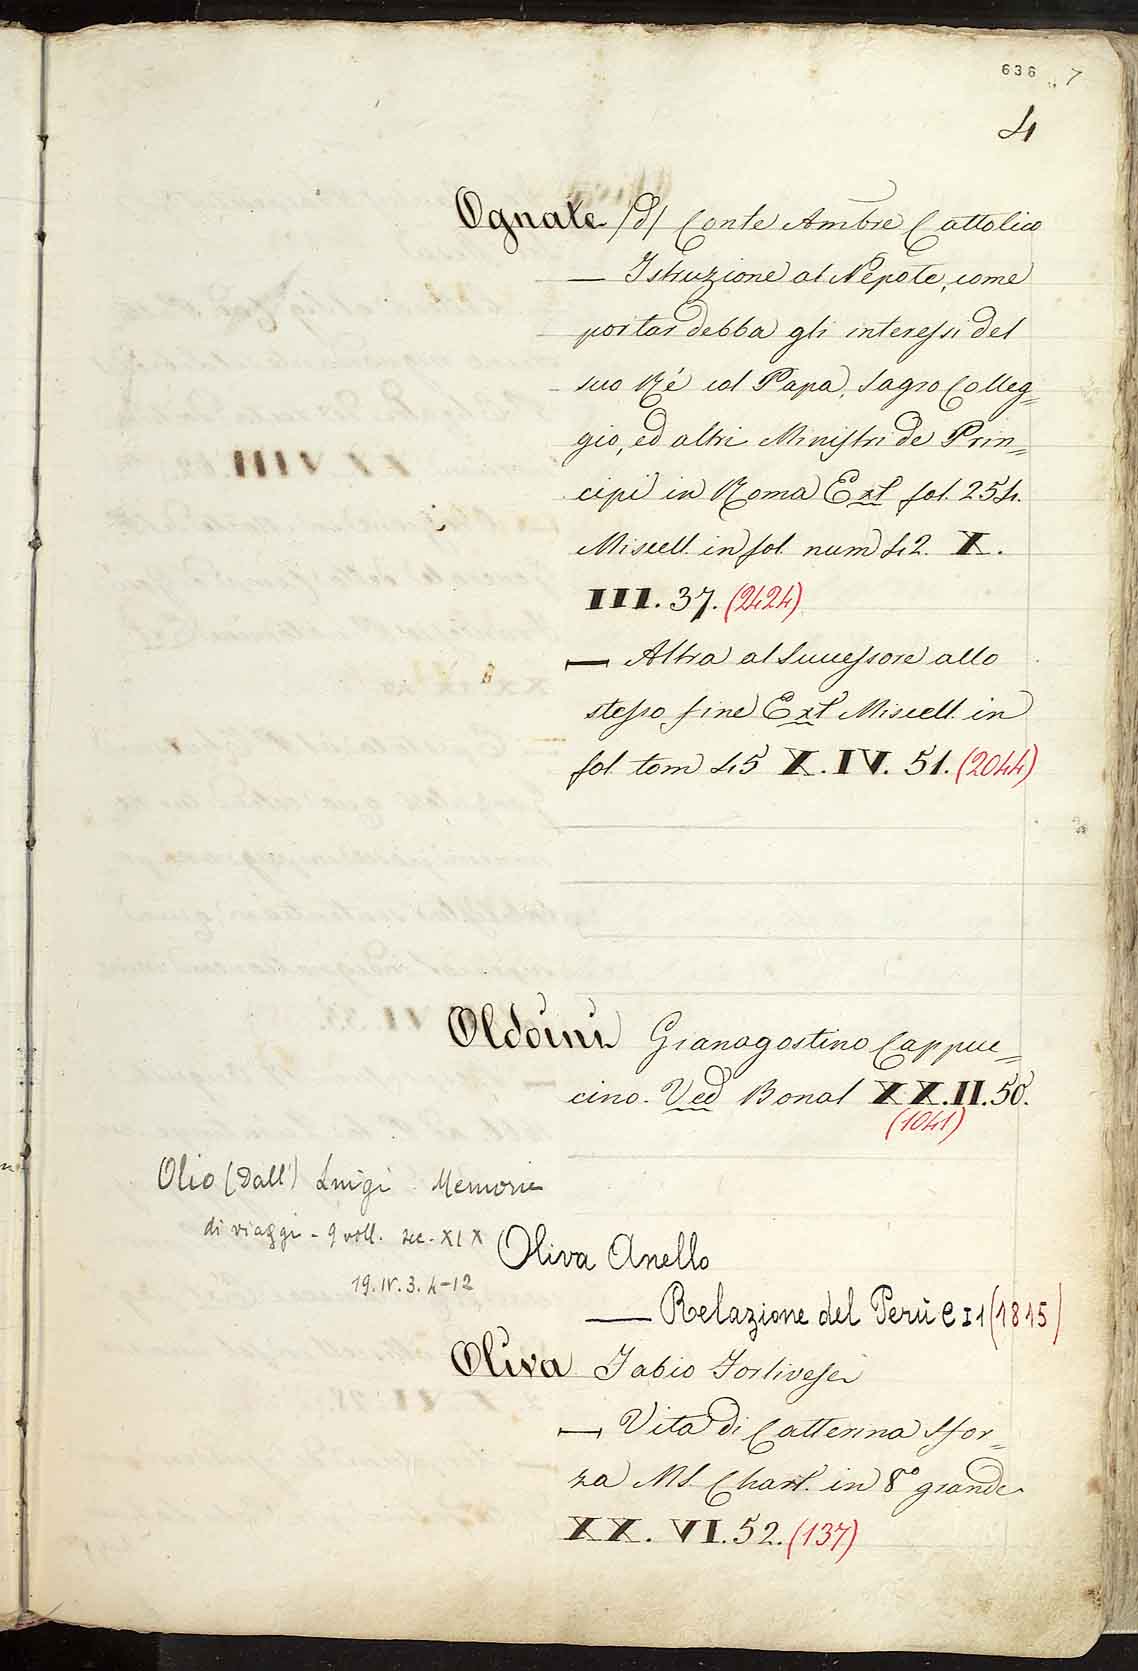 636 7
4
Ognate /d/ Conte Ambre Cattolico
— Istruzione al Nepote, come
portar debba gli interessi del
suo Ré col Papa, Sagro Colleg=
gio, ed altri Ministri de Prin=
cipi in Roma Ext fol. 254.
Miscell. in fol. num 42. X.
III. 37. (2424)
— Altra al Successore allo
stesso fine Ext Miscell. in
fol. tom 45 X. IV. 51. (2044)
Oldoini Gianagostino Cappuc=
cino. Ved Bonal XX.II.50.
(1041)
Olio (Dall') Luigi. Memorie
di viaggi - 9 voll. sec. XIX
19.IV.3.4-12
Oliva Anello
— Relazione del Perù C I 1 (1815)
Oliva Fabio Forlivese
— Vita di Catterina Sfor=
za MS. Chart. in 8° grande
XX. VI. 52. (137)